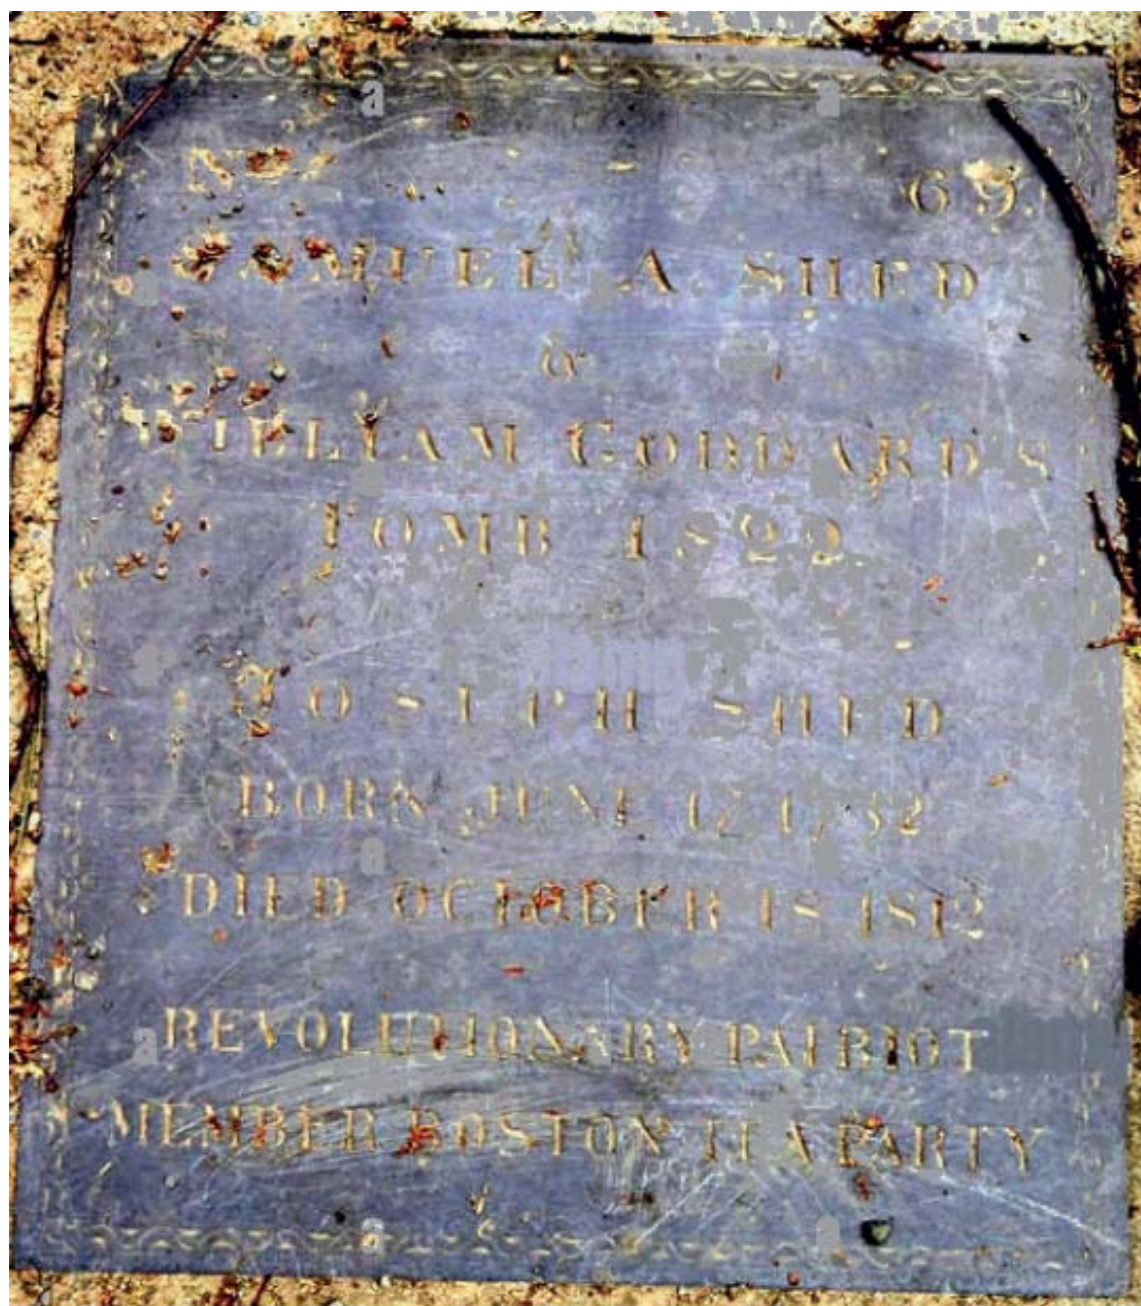 No. 69.
SAMUEL A. SHED
&
WILLIAM GODDARD'S
TOMB 1822.
JOSEPH SHED
BORN JUNE 17 1732
DIED OCTOBER 18 1812
REVOLUTIONARY PATRIOT
MEMBER BOSTON TEA PARTY